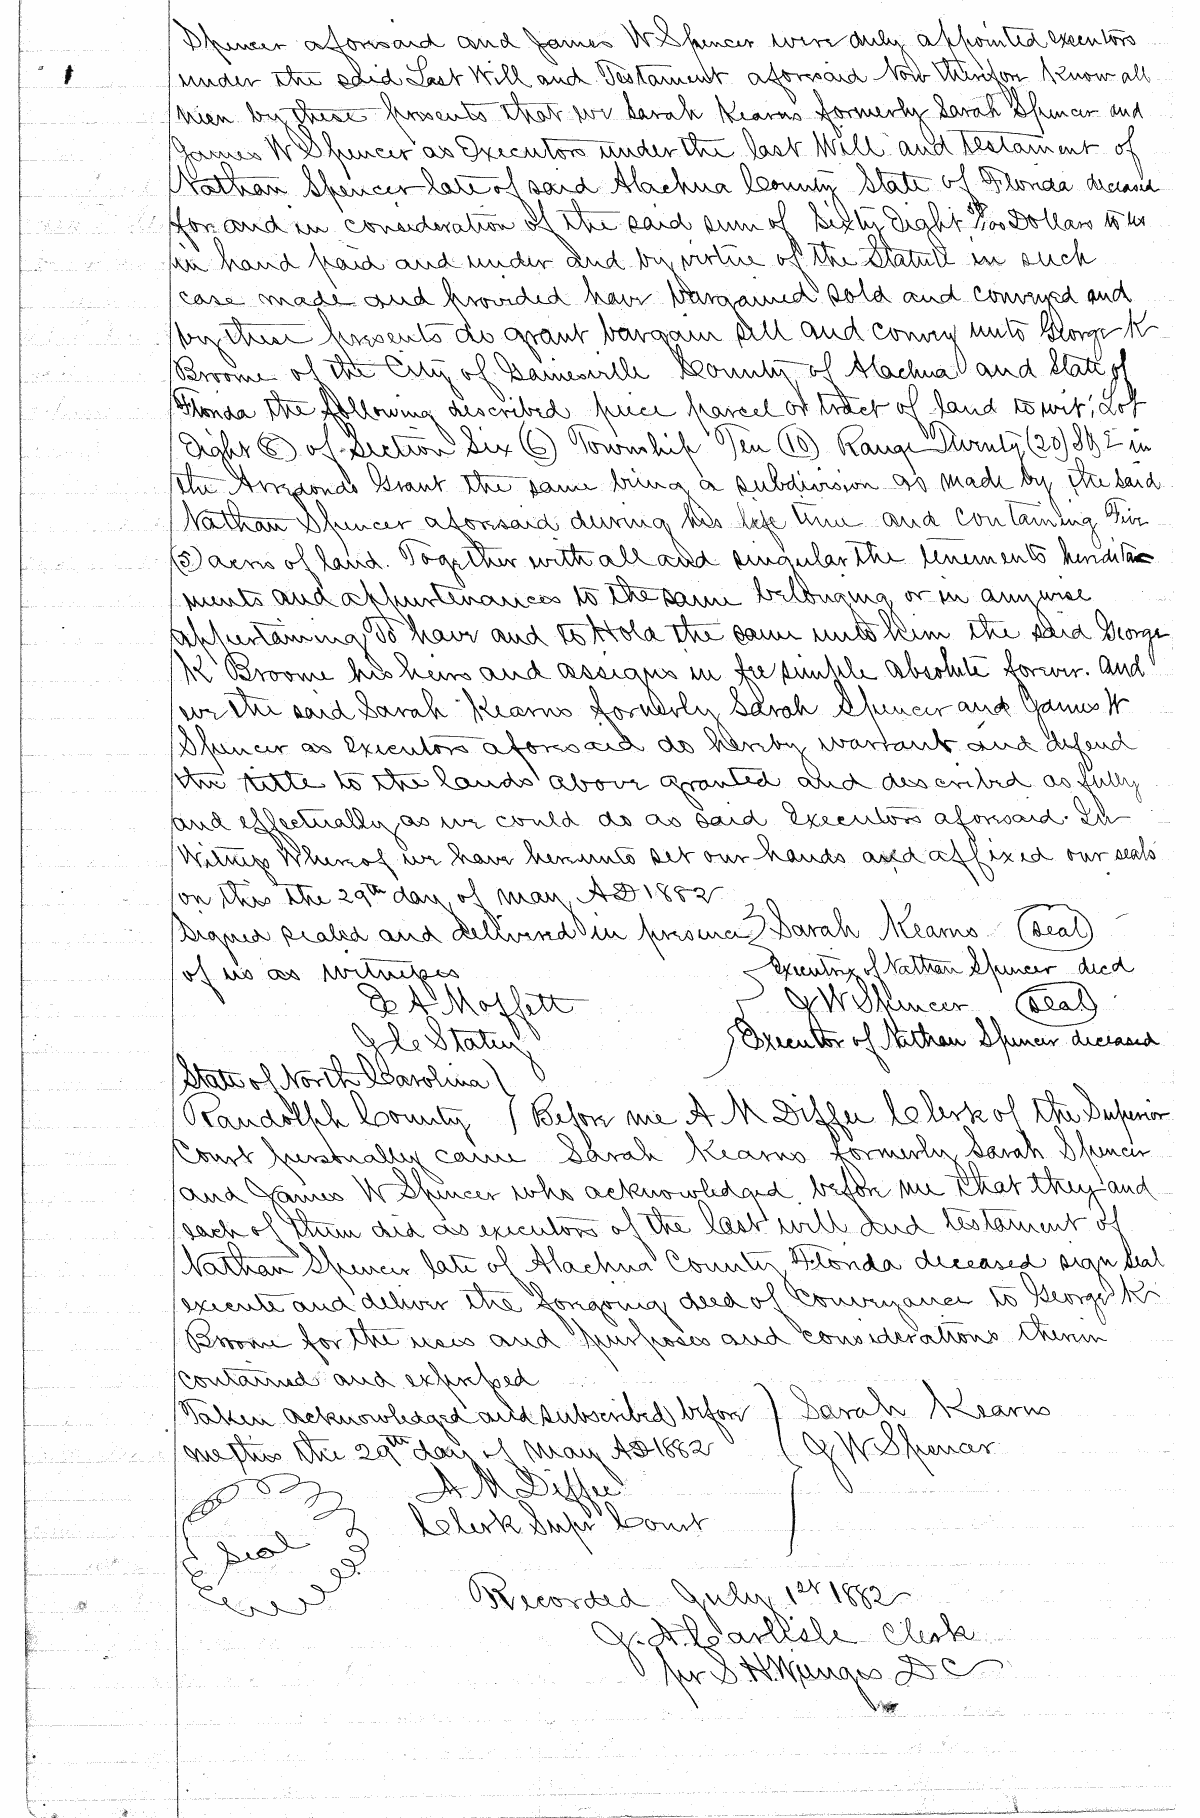 Spencer aforesaid and James W Spencer were duly appointed executors
under the said Last Will and Testament aforesaid Now therefore Know all
men by these presents that we Sarah Kearns formerly Sarah Spencer and
James W Spencer as Executors under the last Will and testament of
Nathan Spencer late of said Alachua County State of Florida deceased
for and in consideration of the said sum of Sixty Eight /100 Dollars to us
in hand paid and under and by virtue of the Statute in such
case made and provided have bargained sold and conveyed and
by these presents do grant bargain sell and convey unto George K
Broome of the City of Gainesville County of Alachua and State of
Florida the following described piece parcel or tract of land to wit; Lot
Eight (8) of Section Six (6) Township Ten (10) Range Twenty (20) S & E in
the Arredondo Grant the same being a subdivision as made by the said
Nathan Spencer aforesaid during his life time and containing Five
(5) acres of land. Together with all and singular the tenements heredita
ments and appurtenances to the same belonging or in anywise
appertaining To have and to Hold the same unto him the said George
K Broome his heirs and assigns in fee simple absolute forever. And
we the said Sarah Kearns formerly Sarah Spencer and James W
Spencer as Executors aforesaid do hereby warrant and defend
the title to the lands above granted and described as fully
and effectually as we could do as said Executors aforesaid. In
Witness Whereof we have hereunto set our hands and affixed our seals
on this the 29th day of May AD 1882
Signed sealed and delivered in presence Sarah Kearns (seal)
of us as witnesses Executrix of Nathan Spencer decd
A Moffett J W Spencer (seal)
Executor of Nathan Spencer deceased
State of North Carolina )
Randolph County ) Before me A M Diffee Clerk of the Superior
Court personally came Sarah Kearns formerly Sarah Spencer
and James W Spencer who acknowledged before me that they and
each of them did as executors of the last will and testament of
Nathan Spencer late of Alachua County Florida deceased sign seal
execute and deliver the foregoing deed of Conveyance to George K
Broome for the uses and purposes and considerations therein
contained and expressed
Taken acknowledged and subscribed before ) Sarah Kearns
me this the 29th day of May AD 1882 ( J W Spencer
A M Diffee
Clerk Supr Court
Seal
Recorded July 1st 1882
J. A. Carlisle Clerk
pr S. H. Wienges D C